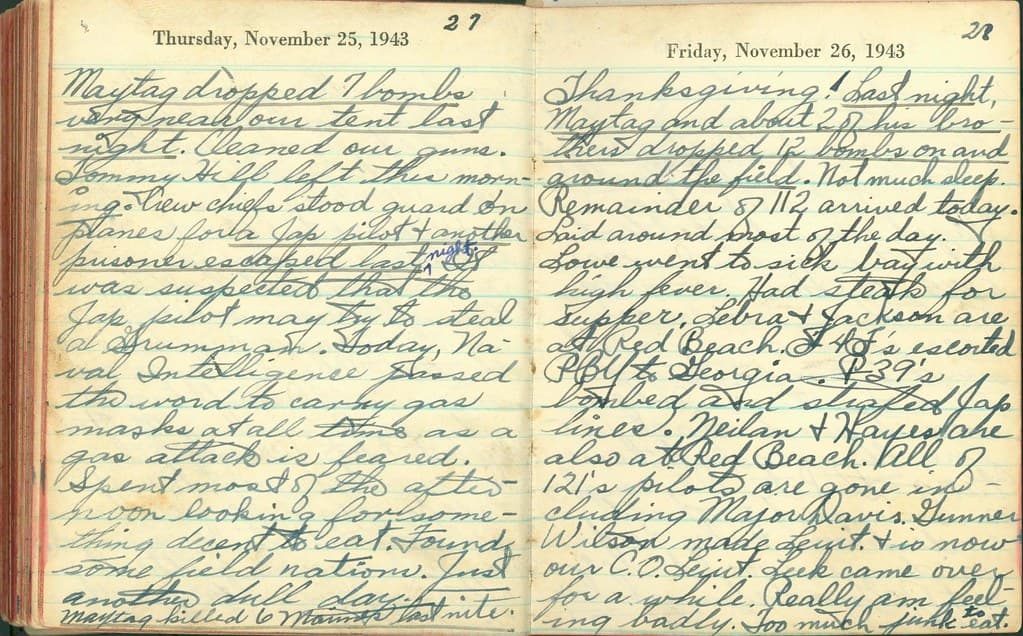 27
Thursday, November 25, 1943
Maytag dropped 7 bombs
very near our tent last
night. Cleaned our guns.
Tommy Hill left this morn-
ing. Crew chiefs stood guard on
planes for a Jap pilot & another
prisoner escaped last night. It
was suspected that the
Jap pilot may try to steal
a Grumman. Today, Na-
val Intelligence passed
the word to carry gas
masks at all time as a
gas attack is feared.
Spent most of the after-
noon looking for some-
thing decent to eat. Found
some field rations. Just
another dull day.
Maytag killed 6 Marines last nite.
28
Friday, November 26, 1943
Thanksgiving! Last night,
Maytag and about 2 of his bro-
thers dropped 12 bombs on and
around the field. Not much sleep.
Remainder of 112 arrived today.
Laid around most of the day.
Lowe went to sick bay with
high fever. Had steak for
supper. Lebra & Jackson are
at Red Beach. F4F's escorted
PBY to Georgia. P-39's
bombed and strafed Jap
lines. Neilan & Hayes are
also at Red Beach. All of
121's pilots are gone in-
cluding Major Davis. Gunner
Wilson made Leiut. & is now
our C.O. Leiut. Leek came over
for a while. Really am feel-
ing badly. Too much junk to eat.